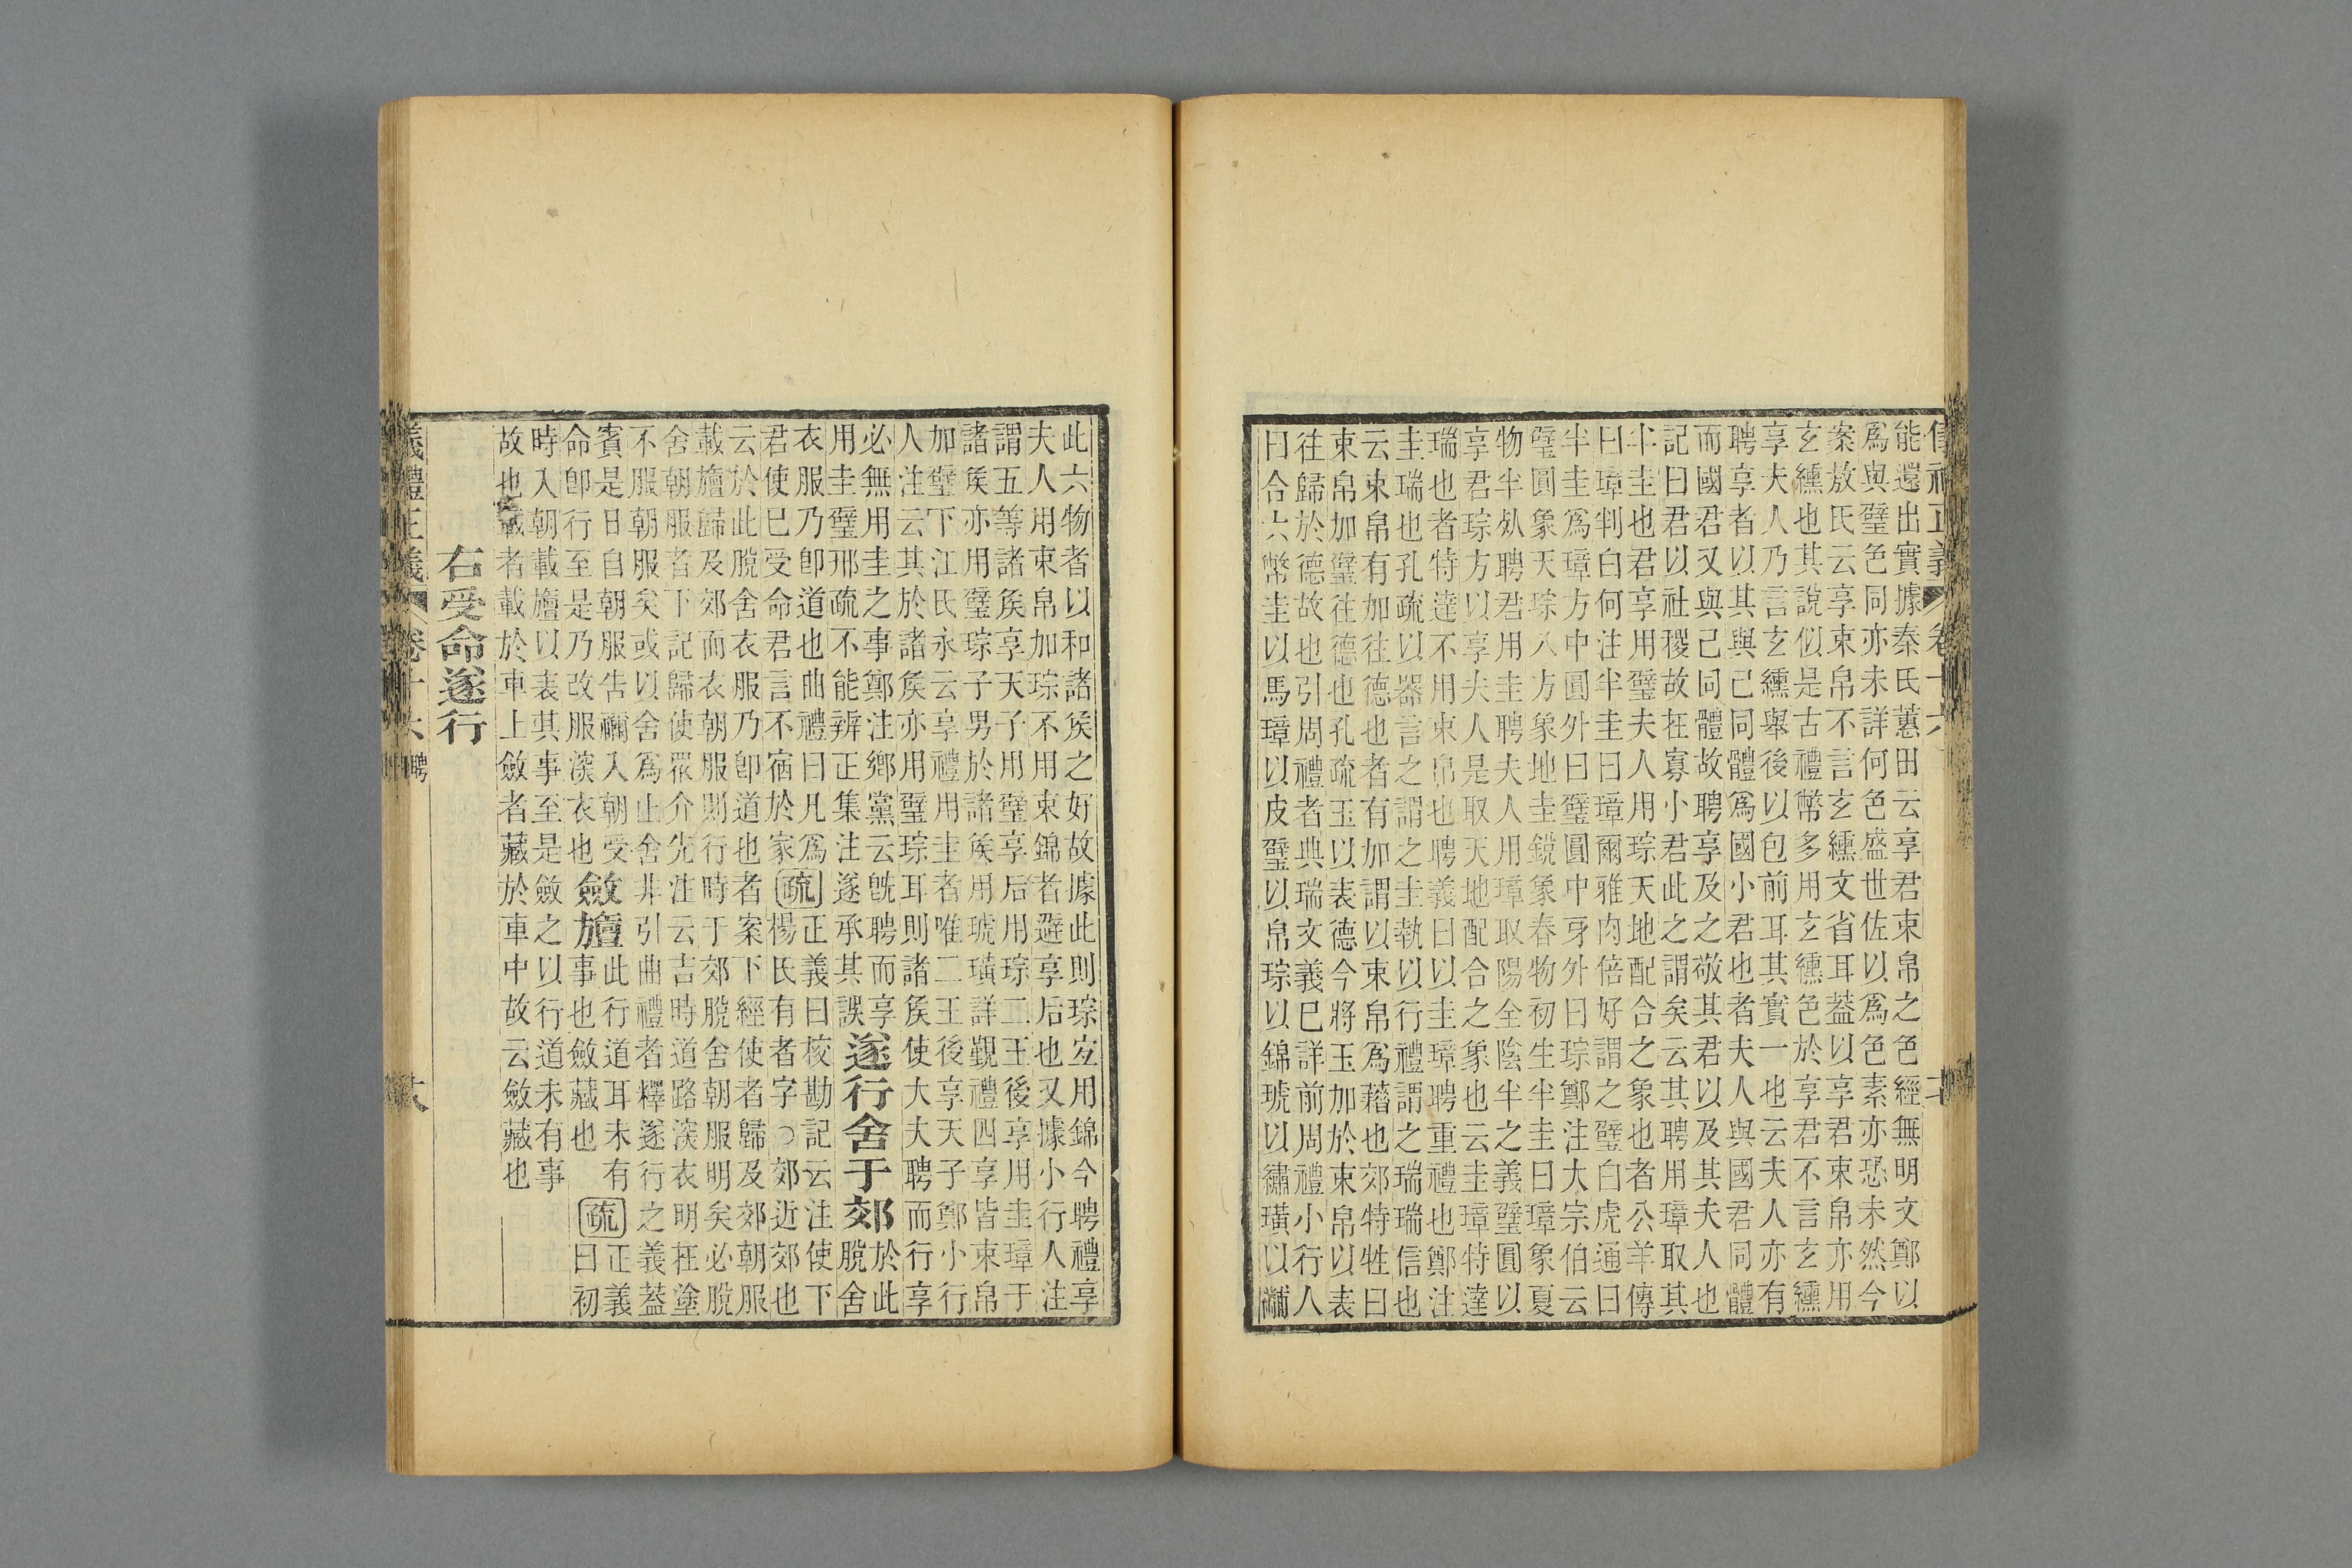 能還出實據秦氏蕙田云享君束帛之色經無明文鄭以
爲與璧色同亦未詳何色盛世佐以爲色素亦恐未然今
案敖氏云享束帛不言玄纁文省耳葢以享君束帛亦用
玄纁也其說似是古禮幣多用玄纁色於享君不言玄纁
享夫人乃言玄纁舉後以包前耳其實一也云夫人亦有
聘享者以其與己同體爲國小君也者夫人與國君同體
而國君又與己同體故聘享及之敬其君以及其夫人也
記曰君以社稷故在寡小君此之謂矣云其聘用璋取其
半圭也君享用璧夫人用琮天地配合之象也者公羊傳
曰璋判白何注半圭曰璋爾雅肉倍好謂之璧白虎通曰
半圭爲璋方中圓外曰璧圓中牙外曰琮鄭注大宗伯云
璧圓象天琮八方象地圭銳象春物初生半圭曰璋象夏
物半死聘君用圭聘夫人用璋取陽全陰半之義璧圓以
享君琮方以享夫人是取天地配合之象也云圭璋特達
瑞也者特達不用束帛也聘義曰以圭璋聘重禮也鄭注
圭瑞也孔疏以器言之謂之圭執以行禮謂之瑞瑞信也
云束帛有加往德也者有加謂以束帛爲藉也郊特牲曰
束帛加璧往德也孔疏玉以表德今將玉加於束帛以表
往歸於德故也引周禮者典瑞文義已詳前周禮小行人
曰合六幣圭以馬璋以皮璧以帛琮以錦琥以繡璜以黼
此六物者以和諸侯之好故據此則琮宐用錦今聘禮享
夫人用束帛加琮不用束錦者避享后也又據小行人注
謂五等諸侯享天子用璧享后用琮二王後享用圭璋于
諸侯亦用璧琮子男於諸侯用琥璜詳覲禮四享皆束帛
加璧下江氏永云享禮用圭者唯二王後享天子鄭小行
人注云其於諸侯亦用璧琮耳則諸侯使大夫聘而行享
必無用圭之事鄭注鄉黨云旣聘而享
用圭璧邢疏不能辨正集注遂承其誤
遂行舍于郊
於此
脫舍
衣服乃卽道也曲禮曰凡爲
君使已受命君言不宿於家
疏
正義曰校勘記云注使下
楊氏有者字○郊近郊也
云於此脫舍衣服乃卽道也者案下經使者歸及郊朝服
載旜歸及郊而衣朝服則行時于郊脫舍朝服明矣必脫
舍朝服者下記歸使眾介先注云吉時道路深衣明在塗
不服朝服矣或以舍爲止舍非引曲禮者釋遂行之義葢
賓是日自朝服告禰入朝受
命卽行至是乃改服深衣也
斂旜
此行道耳未有
事也斂藏也
疏
正義
曰初
時入朝載旜以表其事至是斂之以行道未有事
故也載者載於車上斂者藏於車中故云斂藏也
右受命遂行
儀禮正義 卷十六 聘